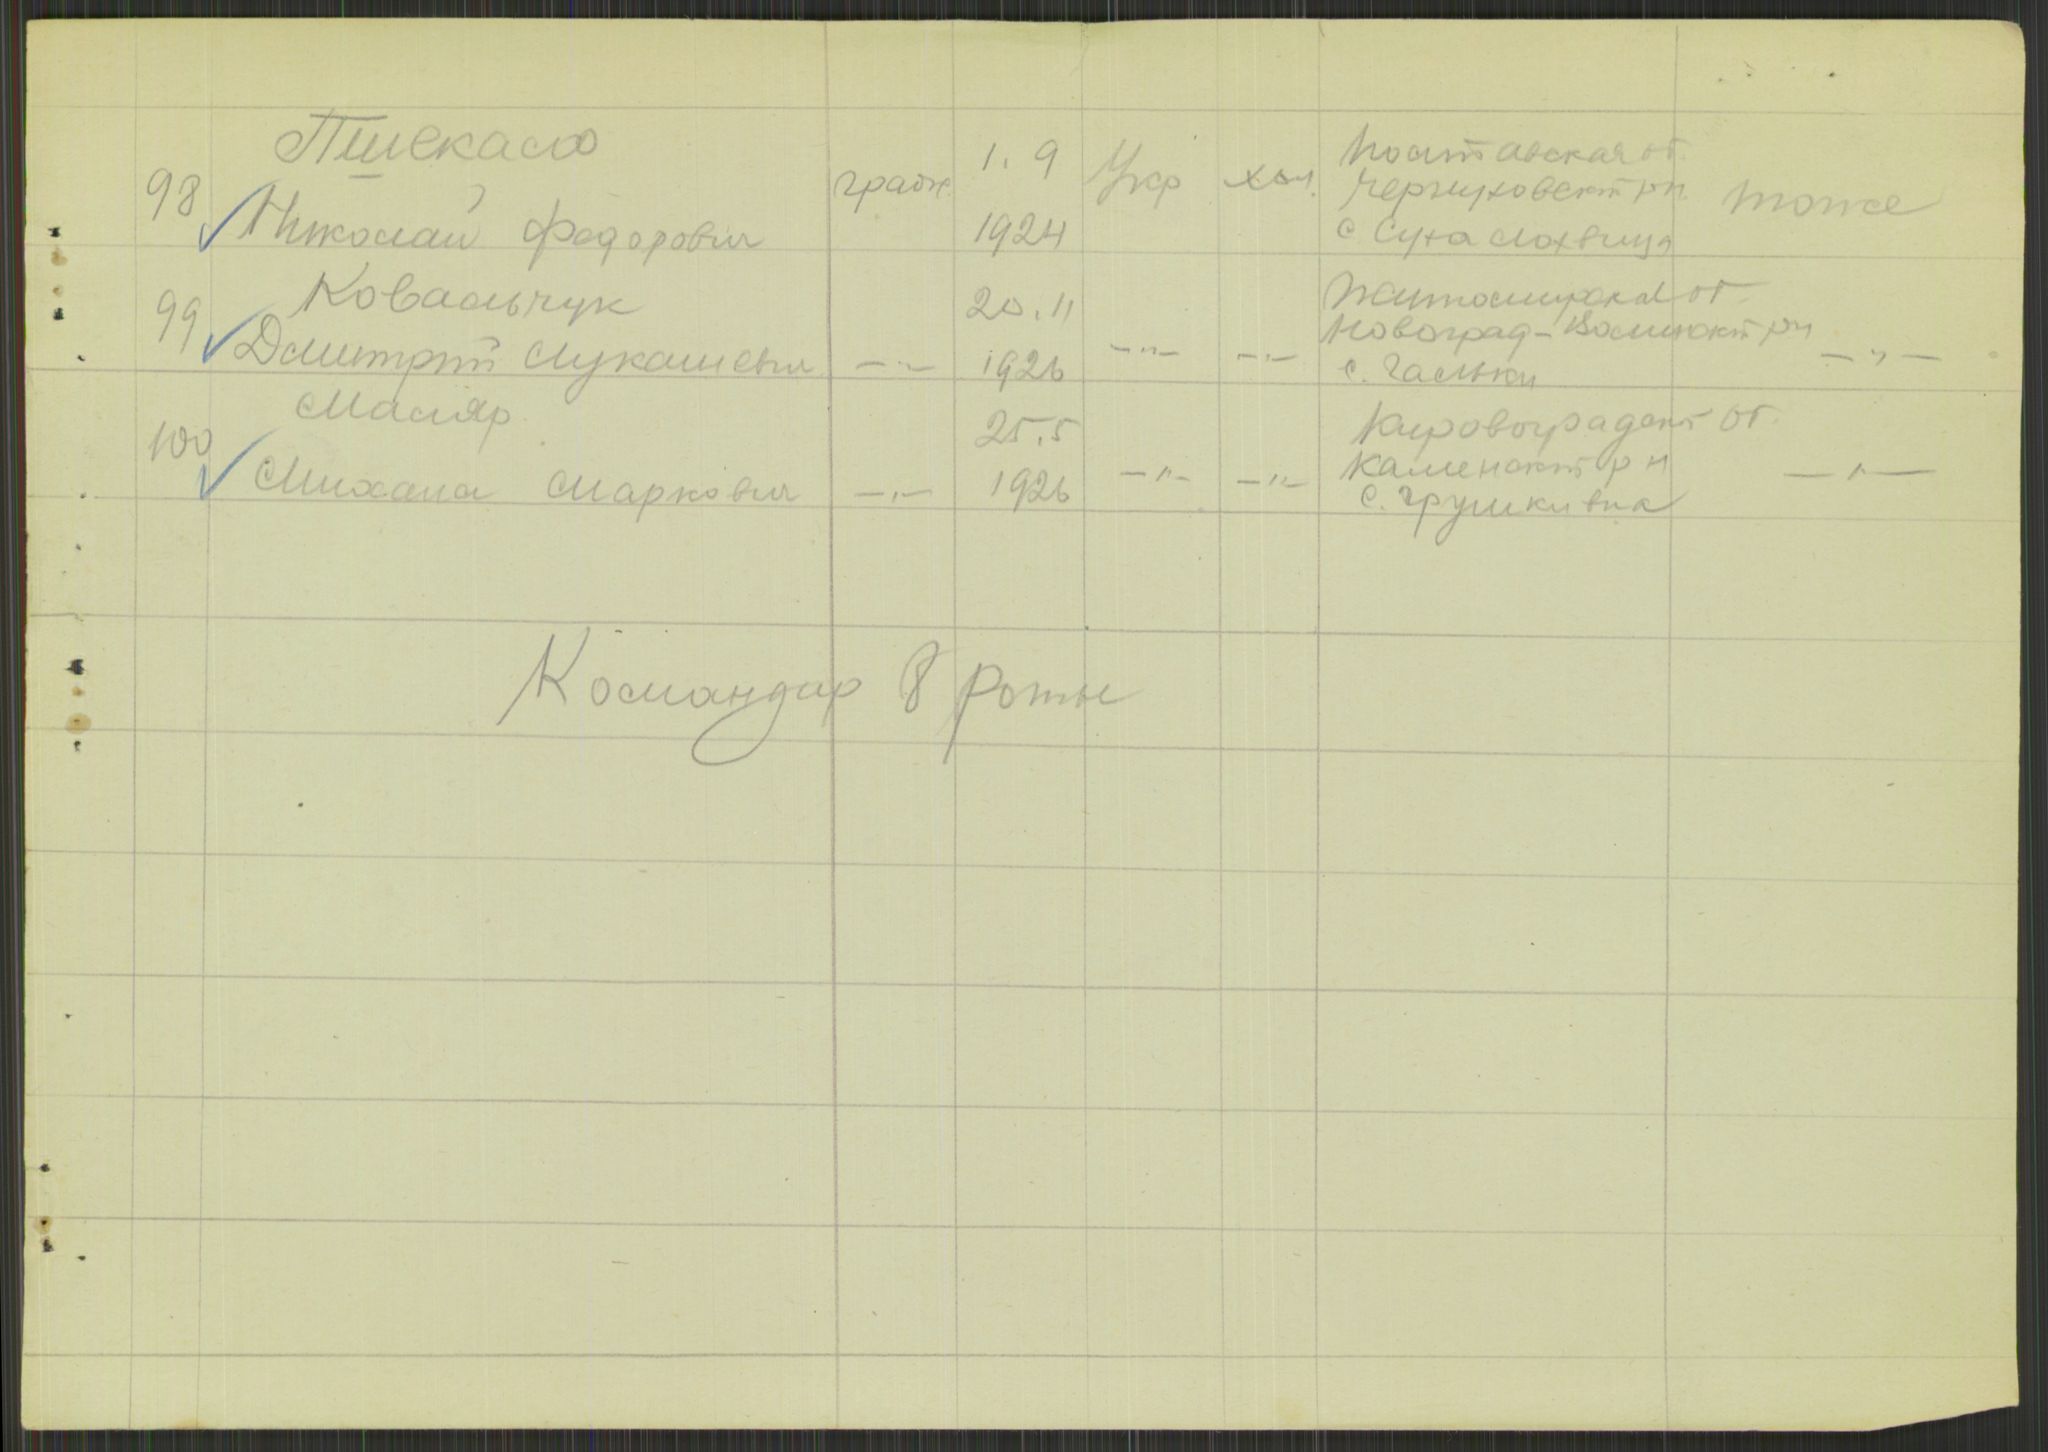 98 Пшекало
Николай Федорович гражд. 1.9 1924 Укр хол. Полтавская об. Чернуховский рн с Суха Лохвица тоже
99 Ковальчук
Дмитрий Лукашевич —"— 20.11 1926 —"— —"— Житомирская об. Новоград-Волинский рн с. Гальки —"—
100 Маляр
Михаил Маркович —"— 25.5 1926 —"— —"— Кировоградский об. Каменский рн с. Грушкивка —"—
Командир 8 роты